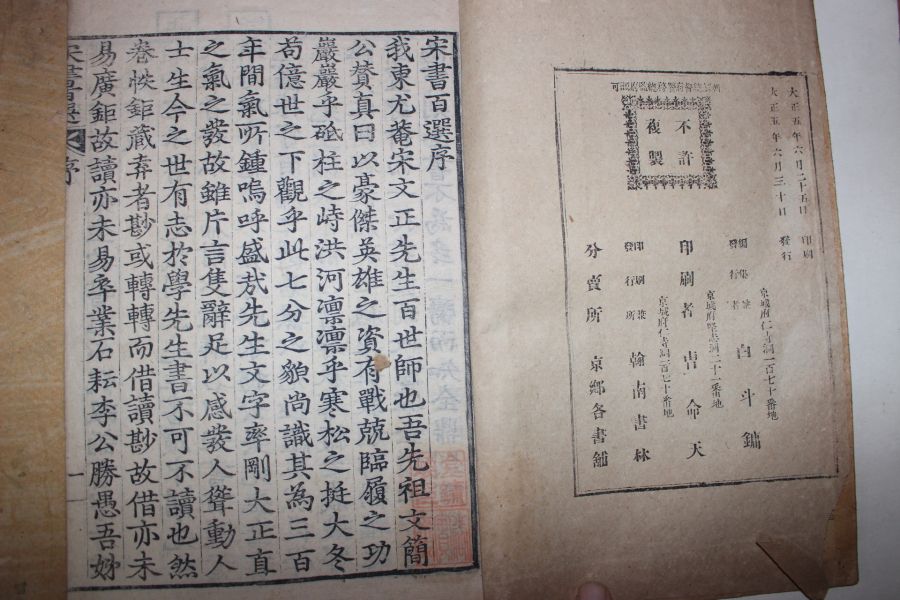 不許
複製
大正五年六月二十五日 印刷
大正五年六月三十日 發行
京城府仁寺洞一百七十番地
編集兼
發行者 白斗鏞
印刷者 吉命天
京城府仁寺洞一百七十番地
印刷兼
發行所 翰南書林
分賣所 京鄉各書舖
宋書百選序
我東尤菴宋文正先生百世師也吾先祖文簡
公賛真曰以豪傑英雄之資有戰兢臨履之功
巖巖乎砥柱之峙洪河凛凛乎寒松之挺大冬
苟億世之下觀乎此七分之貌尚識其為三百
年間氣所鍾嗚呼盛㦲先生文字率剛大正直
之氣之發故雖片言隻辭足以感發人聳動人
士生今之世有志於學先生書不可不讀也然
卷帙鉅藏弆者尠或轉轉而借讀尠故借亦未
易廣鉅故讀亦未易卒業石耘李公勝愚吾姊
宋書百選
序
一